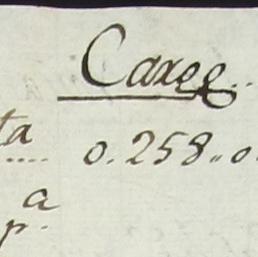 Caxeg..
ta 0.258..0.
a
p.